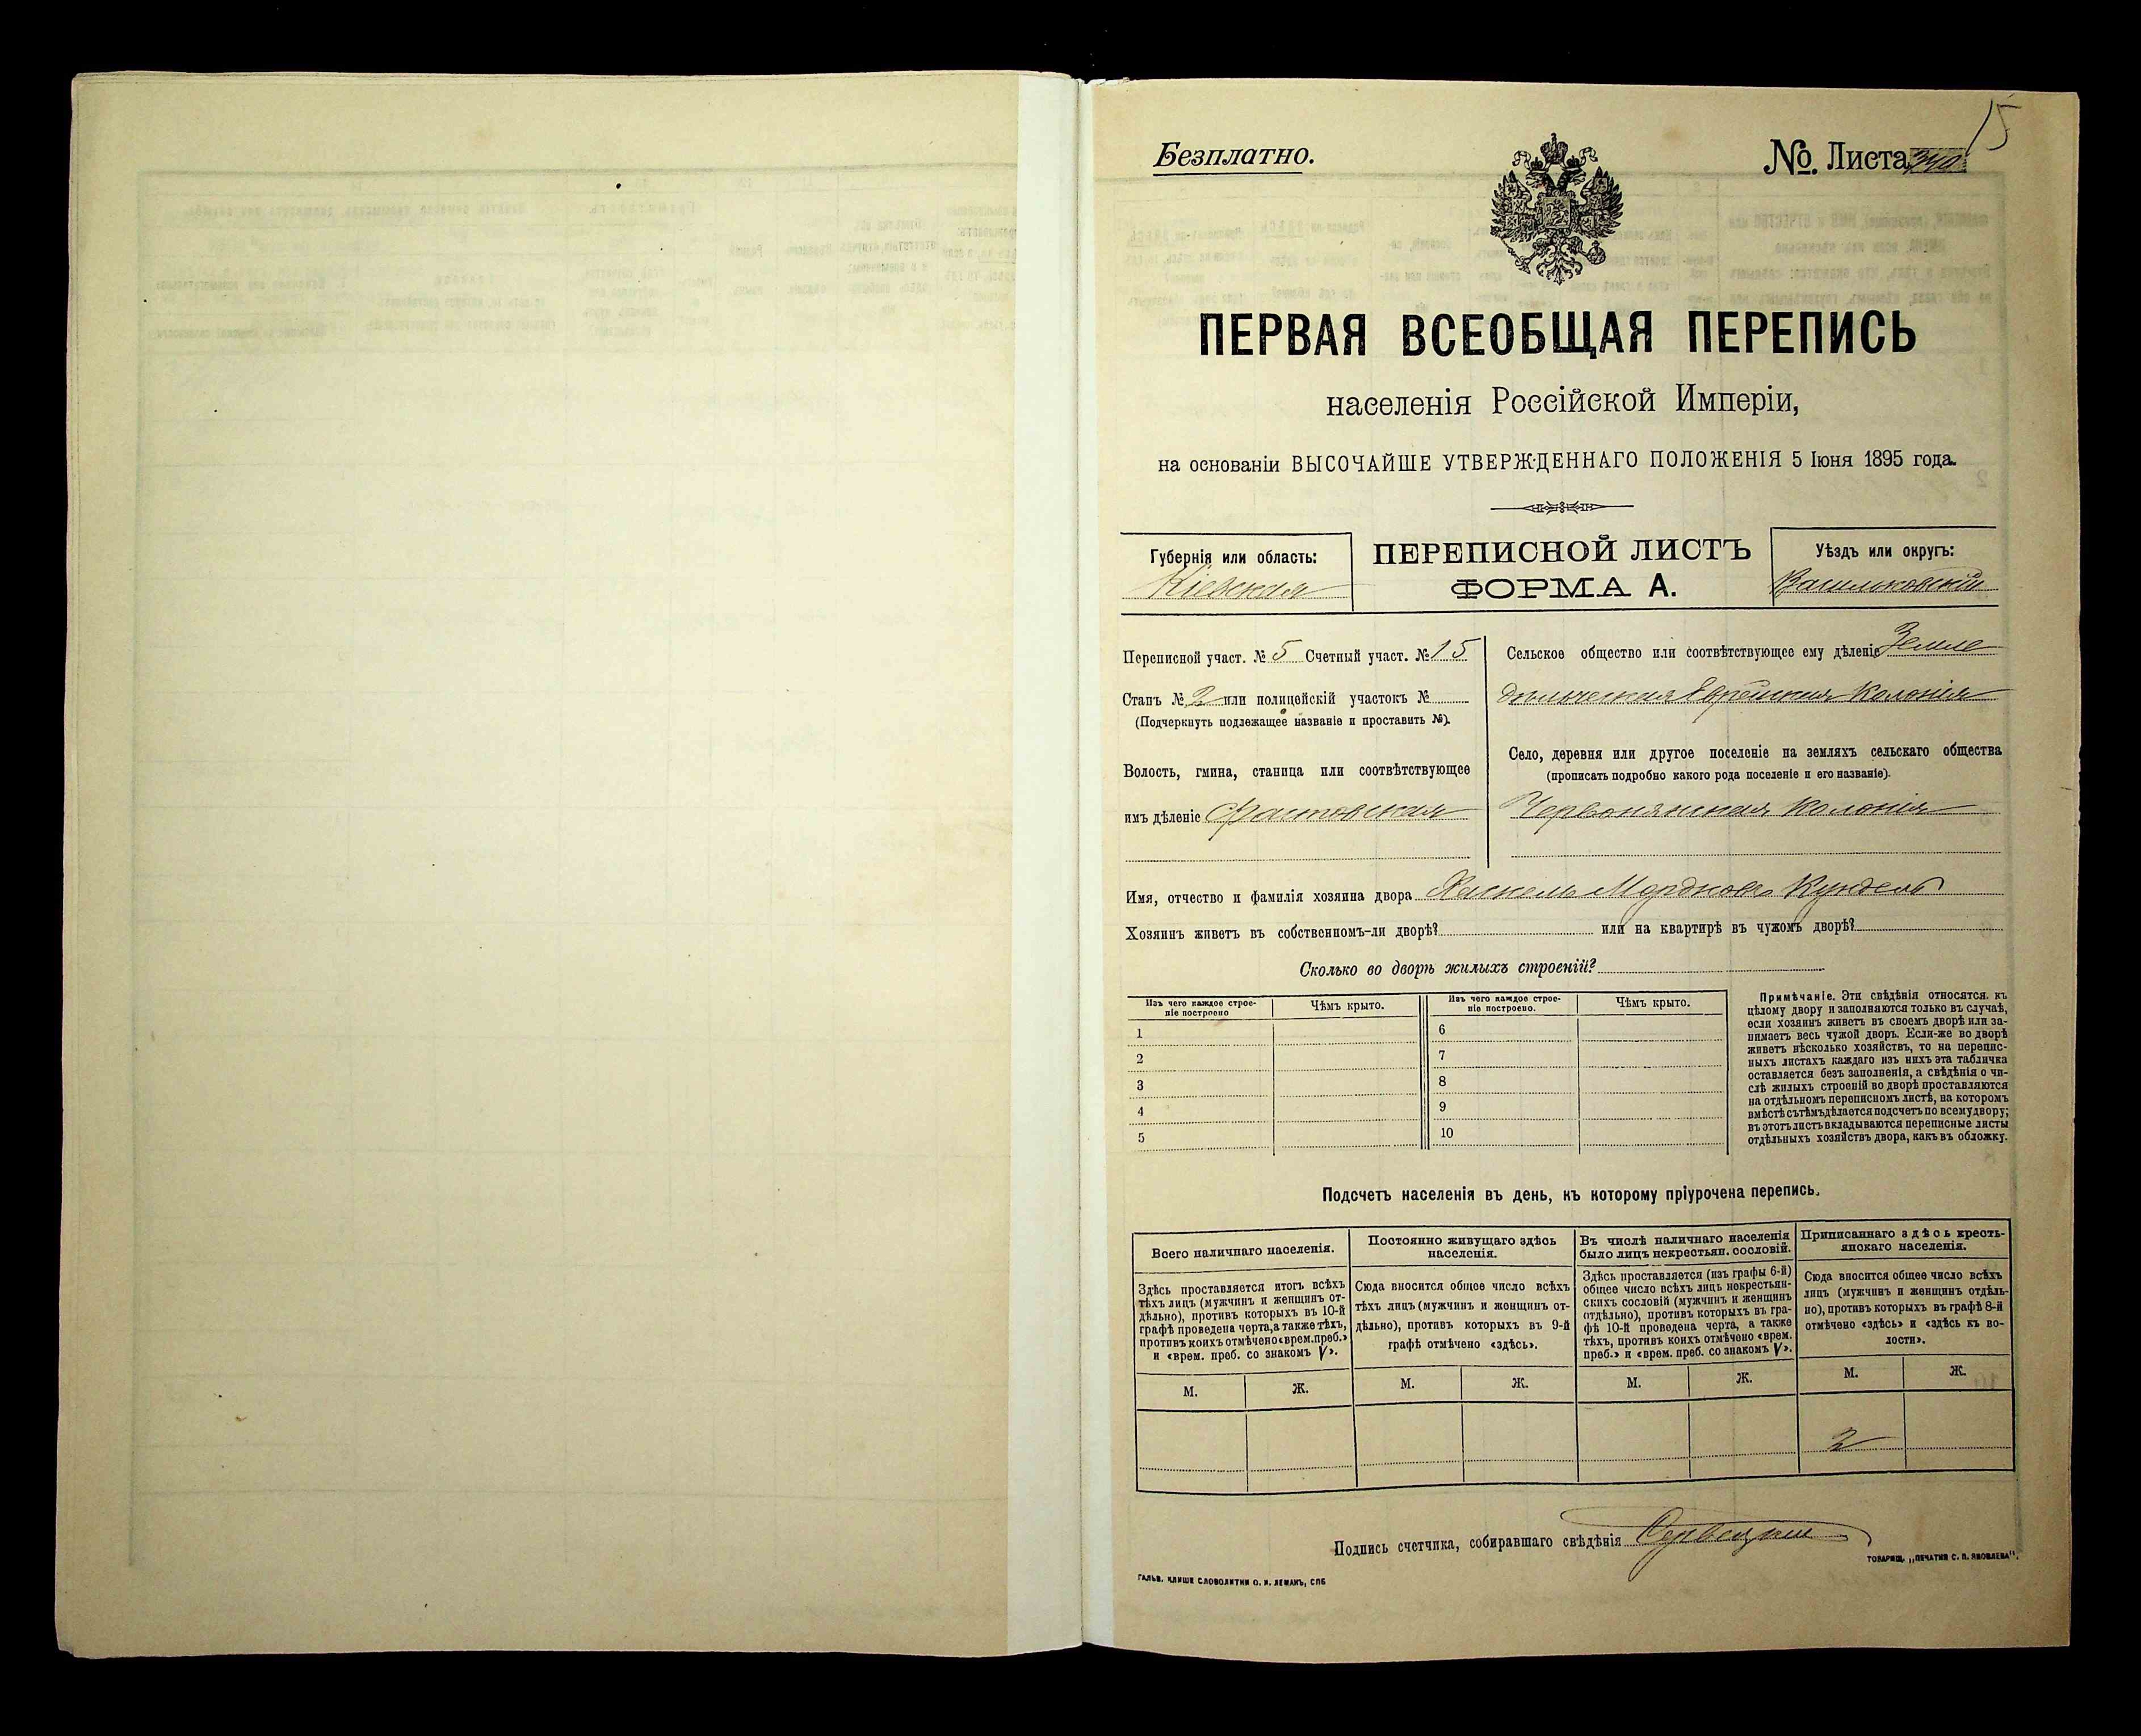 15
Безплатно.
№ Листа 340
ПЕРВАЯ ВСЕОБЩАЯ ПЕРЕПИСЬ
населенія Россійской Имперіи,
на основаніи ВЫСОЧАЙШЕ УТВЕРЖДЕННАГО ПОЛОЖЕНІЯ 5 Іюня 1895 года.
Губернія или область:
Кіевская
ПЕРЕПИСНОЙ ЛИСТЪ
ФОРМА А.
Уѣздъ или округъ:
Васильковскій
Переписной участ. № 5 Счетный участ. № 15
Станъ № 2 или полицейскій участокъ №
(Подчеркнуть подлежащее названіе и проставить №).
Волость, гмина, станица или соотвѣтствующее
имъ дѣленіе Фастовская
Сельское общество или соотвѣтствующее ему дѣленіе Земле
дѣльческая Еврейская Колонія
Село, деревня или другое поселеніе на земляхъ сельскаго общества
(прописать подробно какого рода поселеніе и его названіе).
Червонянская Колонія
Имя, отчество и фамилія хозяина двора Хаскель Мордковъ Кундель
Хозяинъ живетъ въ собственномъ-ли дворѣ? или на квартирѣ въ чужомъ дворѣ?
Сколько во дворѣ жилыхъ строеній?
Изъ чего каждое строе-
ніе построено
Чѣмъ крыто.
Изъ чего каждое строе-
ніе построено.
Чѣмъ крыто.
1
6
2
7
3
8
4
9
5
10
Примѣчаніе. Эти свѣдѣнія относятся къ
цѣлому двору и заполняются только въ случаѣ,
если хозяинъ живетъ въ своемъ дворѣ или за-
нимаетъ весь чужой дворъ. Если-же во дворѣ
живетъ нѣсколько хозяйствъ, то на перепис-
ныхъ листахъ каждаго изъ нихъ эта табличка
оставляется безъ заполненія, а свѣдѣнія о чи-
слѣ жилыхъ строеній во дворѣ проставляются
на отдѣльномъ переписномъ листѣ, на которомъ
вмѣстѣ съ тѣмъ дѣлается подсчетъ по всему двору;
въ этотъ листъ вкладываются переписные листы
отдѣльныхъ хозяйствъ двора, какъ въ обложку.
Подсчетъ населенія въ день, къ которому пріурочена перепись.
Всего наличнаго населенія.
Постоянно живущаго здѣсь
населенія.
Въ числѣ наличнаго населенія
было лицъ некрестьян. сословій.
Приписаннаго здѣсь кресть-
янскаго населенія.
Здѣсь проставляется итогъ всѣхъ
тѣхъ лицъ (мужчинъ и женщинъ от-
дѣльно), противъ которыхъ въ 10-й
графѣ проведена черта, а также тѣхъ,
противъ коихъ отмѣчено «врем. преб.»
и «врем. преб. со знакомъ V».
Сюда вносится общее число всѣхъ
тѣхъ лицъ (мужчинъ и женщинъ от-
дѣльно), противъ которыхъ въ 9-й
графѣ отмѣчено «здѣсь».
Здѣсь проставляется (изъ графы 6-й)
общее число всѣхъ лицъ некрестьян-
скихъ сословій (мужчинъ и женщинъ
отдѣльно), противъ которыхъ въ гра-
фѣ 10-й проведена черта, а также
тѣхъ, противъ коихъ отмѣчено «врем.
преб.» и «врем. преб. со знакомъ V».
Сюда вносится общее число всѣхъ
лицъ (мужчинъ и женщинъ отдѣль-
но), противъ которыхъ въ графѣ 8-й
отмѣчено «здѣсь» и «здѣсь къ во-
лости».
М. Ж. М. Ж. М. Ж. М. Ж.
2
Подпись счетчика, собиравшаго свѣдѣнія
ГАЛЬВ. КЛИШЕ СЛОВОЛИТНИ О. И. ЛЕМАНЪ, СПБ
ТОВАРИЩ. „ПЕЧАТНЯ С. П. ЯКОВЛЕВА".